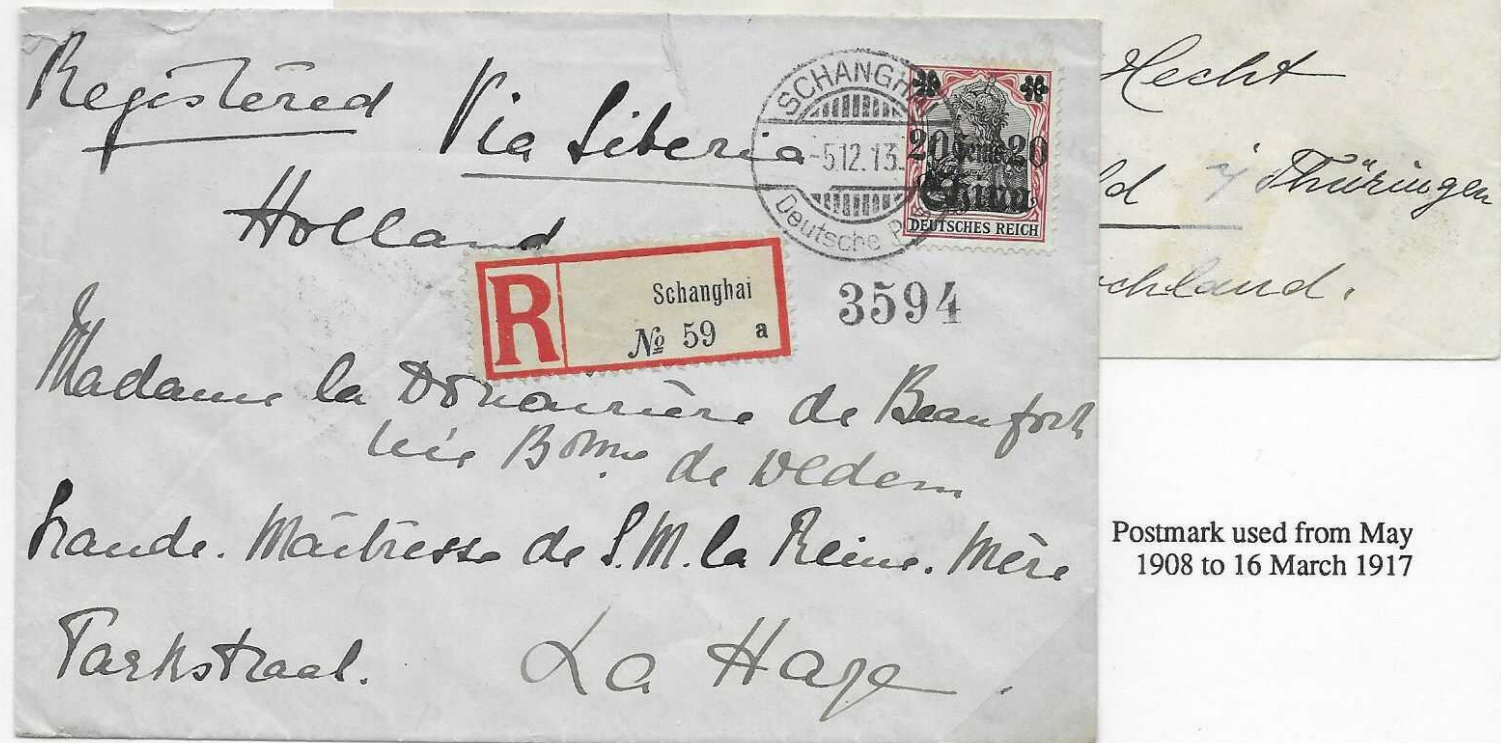 Registered Via Siberia
Holland
SCHANGHAI
-5.12.13.
Deutsche
20 Cents 20
China
DEUTSCHES REICH
R
Schanghai
№ 59 a
3594
Madame la Douairière de Beaufort
née Bonne de Dedem
Grande. Maîtresse de S. M. la Reine. Mère
Parkstraat.
La Haye.
Hecht
ld i/ Thüringen
chland.
Postmark used from May
1908 to 16 March 1917